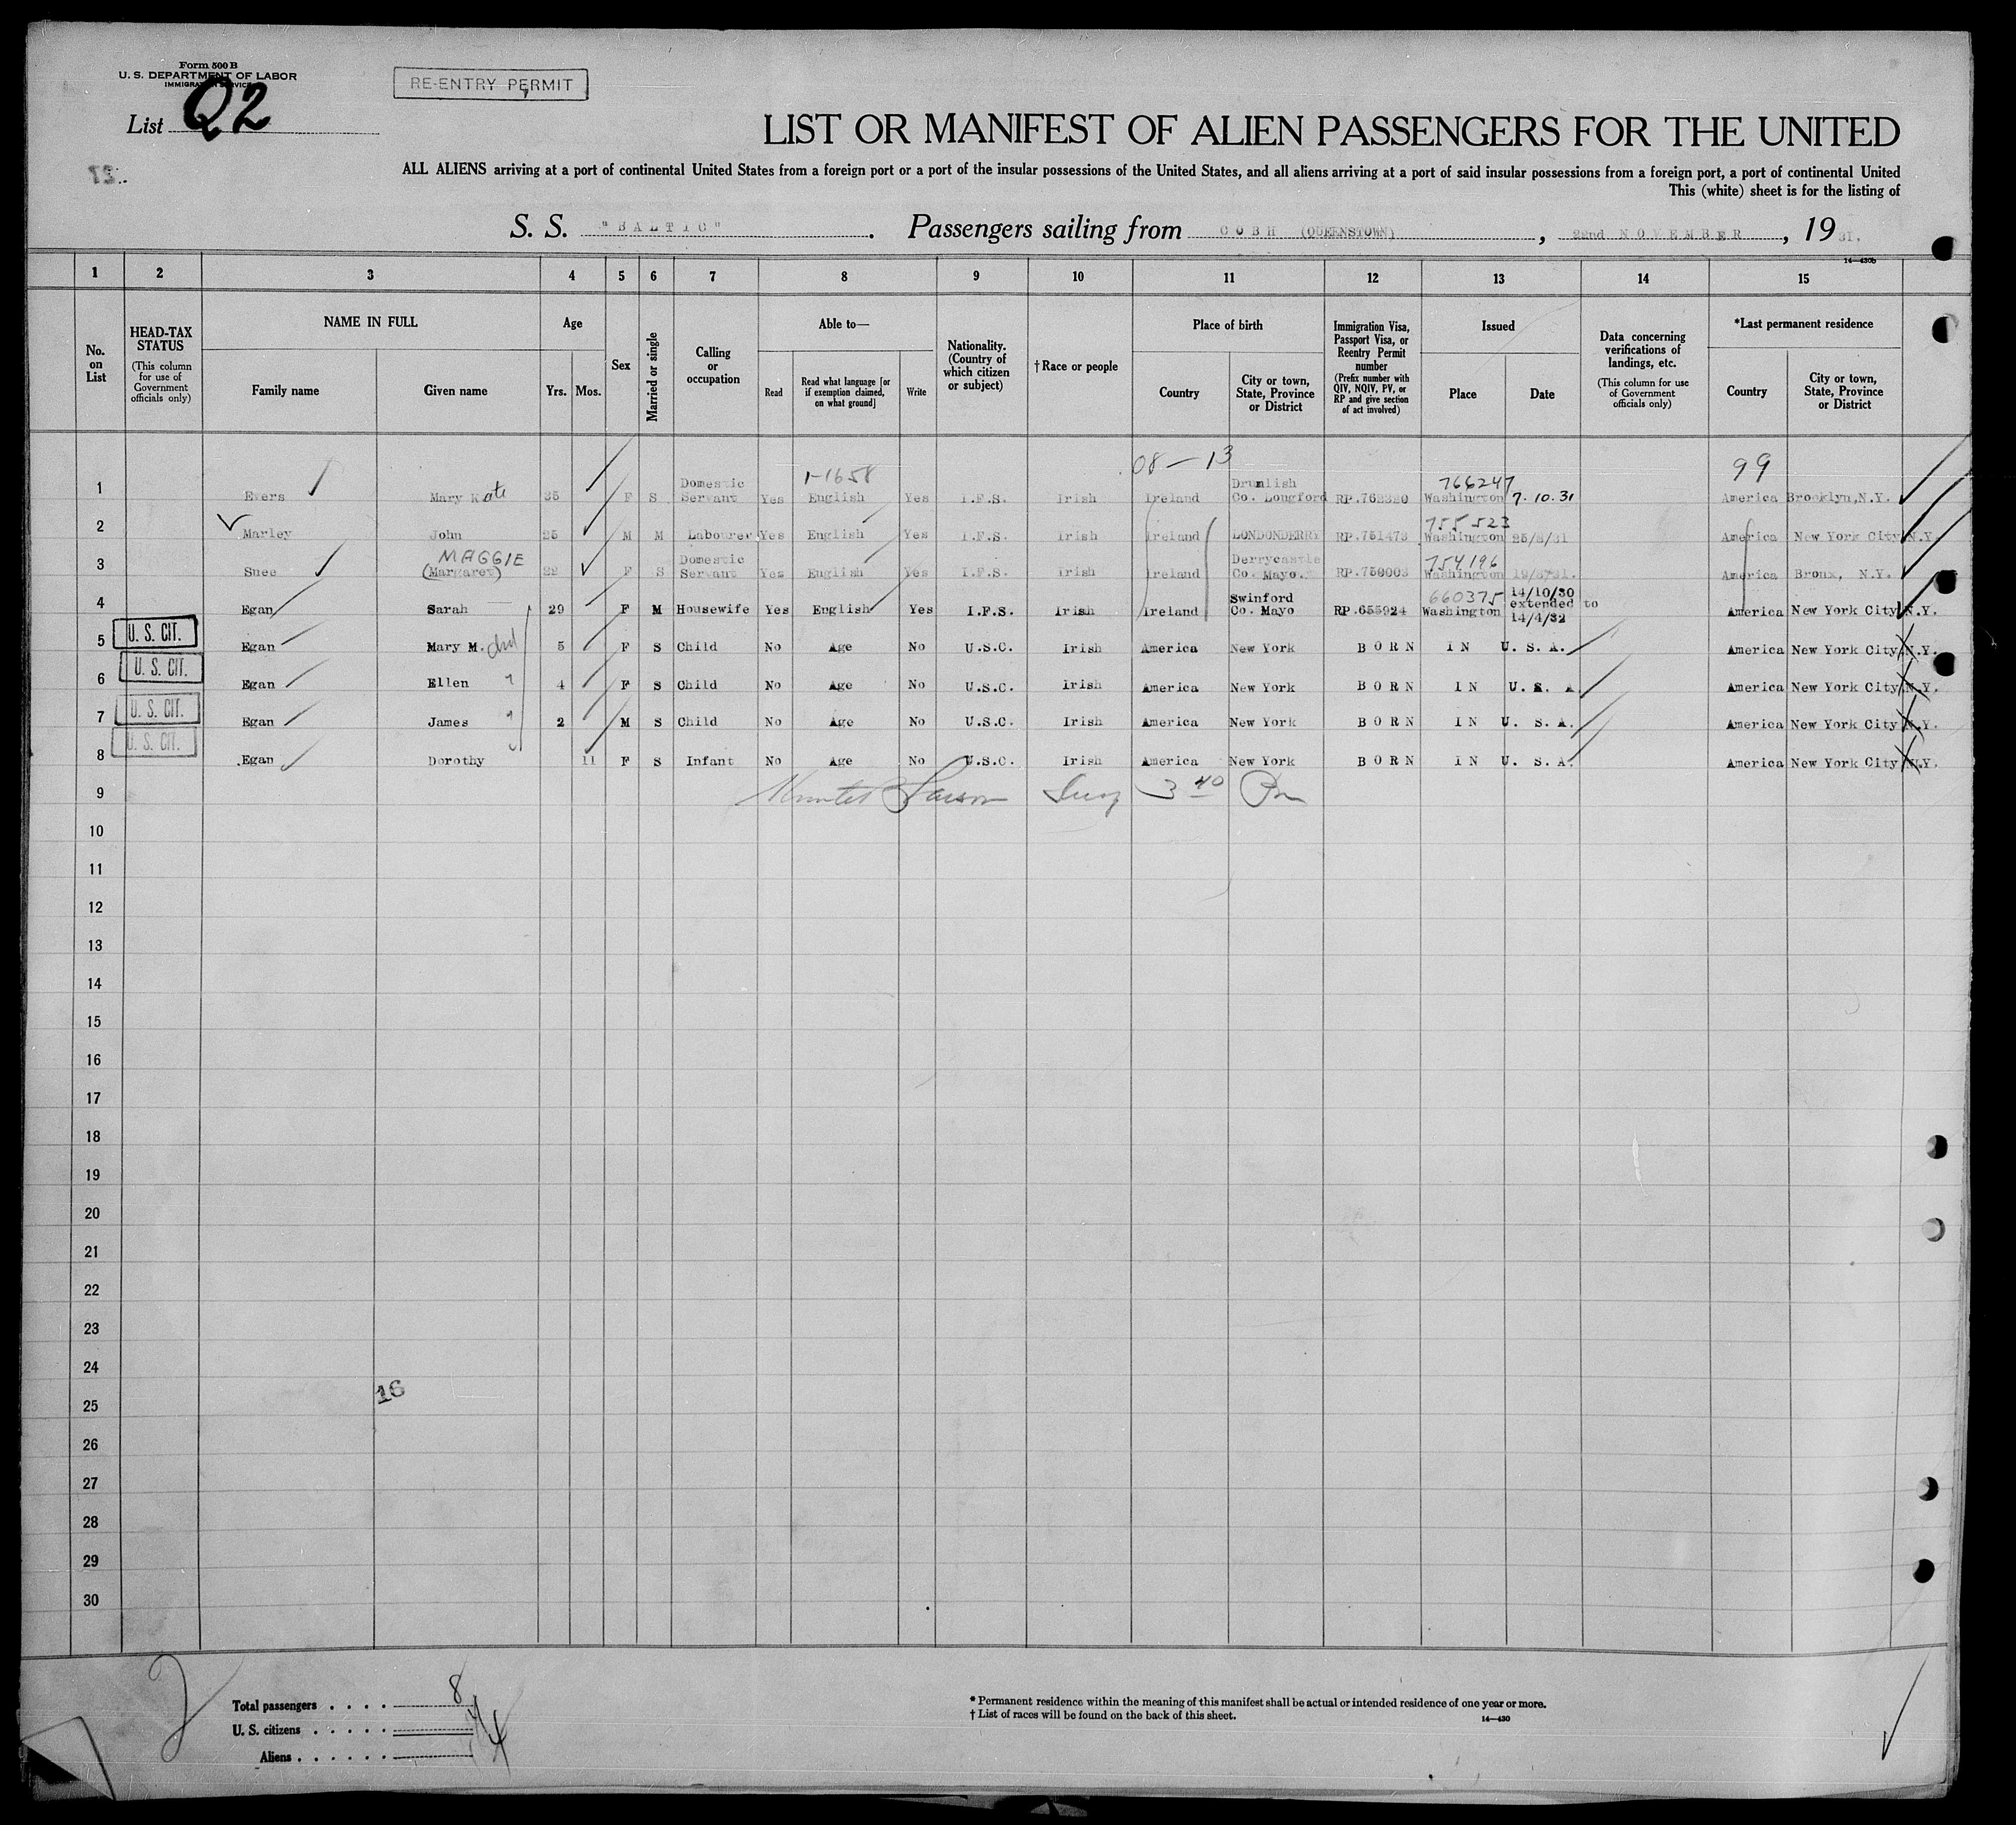 Form 500 B
U. S. DEPARTMENT OF LABOR
IMMIGRATION SERVICE
RE-ENTRY PERMIT
List Q2
27
LIST OR MANIFEST OF ALIEN PASSENGERS FOR THE UNITED
ALL ALIENS arriving at a port of continental United States from a foreign port or a port of the insular possessions of the United States, and all aliens arriving at a port of said insular possessions from a foreign port, a port of continental United
This (white) sheet is for the listing of
S. S. "BALTIC". Passengers sailing from COBH (QUEENSTOWN), 22nd NOVEMBER, 1931.
14—430b
1 2 3 4 5 6 7 8 9 10 11 12 13 14 15
No. on List
HEAD-TAX STATUS (This column for use of Government officials only)
NAME IN FULL
Family name
Given name
Age
Yrs. Mos.
Sex
Married or single
Calling or occupation
Able to—
Read
Read what language [or if exemption claimed, on what ground]
Write
Nationality. (Country of which citizen or subject)
† Race or people
Place of birth
Country
City or town, State, Province or District
Immigration Visa, Passport Visa, or Reentry Permit number (Prefix number with QIV, NQIV, PV, or RP and give section of act involved)
Issued
Place
Date
Data concerning verifications of landings, etc. (This column for use of Government officials only)
*Last permanent residence
Country
City or town, State, Province or District
1-1658 08—13 766247 99
1 Evers Mary Kate 35 F S Domestic Servant Yes English Yes I.F.S. Irish Ireland Drumlish Co. Longford RP.762320 Washington 7.10.31 America Brooklyn, N.Y.
755523
2 Marley John 25 M M Labourer Yes English Yes I.F.S. Irish Ireland LONDONDERRY RP.751473 Washington 25/8/31 America New York City N.Y.
MAGGIE 754196
3 Snee (Margaret) 22 F S Domestic Servant Yes English Yes I.F.S. Irish Ireland Derrycastle Co. Mayo. RP.750003 Washington America Bronx, N.Y.
660375
4 Egan Sarah 29 F M Housewife Yes English Yes I.F.S. Irish Ireland Swinford Co. Mayo RP.655924 Washington 14/10/30 extended to 14/4/32 America New York City N.Y.
5 U. S. CIT. Egan Mary M. 5 F S Child No Age No U.S.C. Irish America New York BORN IN U. S. A. America New York City N.Y.
6 U. S. CIT. Egan Ellen 4 F S Child No Age No U.S.C. Irish America New York BORN IN U. S. A. America New York City N.Y.
7 U. S. CIT. Egan James 2 M S Child No Age No U.S.C. Irish America New York BORN IN U. S. A. America New York City N.Y.
8 U. S. CIT. Egan Dorothy 11 F S Infant No Age No U.S.C. Irish America New York BORN IN U. S. A. America New York City N.Y.
9 3 40 Pm
10
11
12
13
14
15
16
17
18
19
20
21
22
23
24
16
25
26
27
28
29
30
2
Total passengers . . . . 8
U. S. citizens . . . . . 4
Aliens . . . . . . 4
* Permanent residence within the meaning of this manifest shall be actual or intended residence of one year or more.
† List of races will be found on the back of this sheet.
14—430